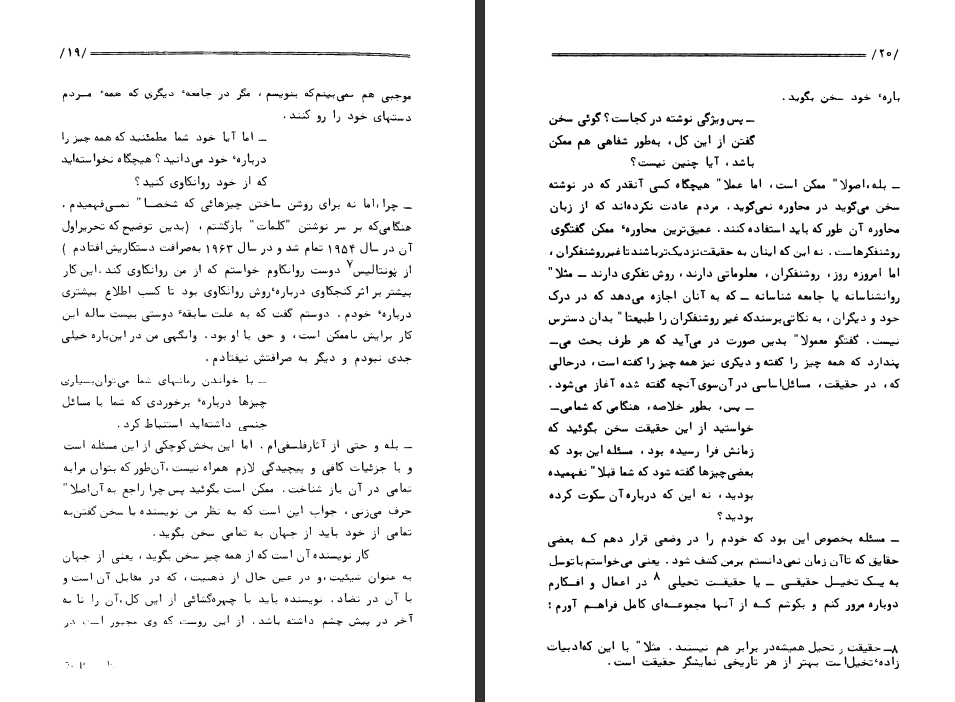 /۱۹/
موجبی هم نمی‌بینم‌که بنویسم ، مگر در جامعهٔ دیگری که همهٔ مردم
دستهای خود را رو کنند .
ــ اما آیا خود شما مطمئنید که همه چیز را
دربارهٔ خود می‌دانید ؟ هیچگاه نخواسته‌اید
که از خود روانکاوی کنید ؟
ــ چرا ،اما نه برای روشن ساختن چیزهائی که شخصا" نمی‌فهمیدم .
هنگامی‌که بر سر نوشتن "کلمات" بازگشتم ، (بدین توضیح که تحریراول
آن در سال ۱۹۵۴ تمام شد و در سال ۱۹۶۳ به‌صرافت دستکاریش افتادم )
از پونتالیس۷ دوست روانکاوم خواستم که از من روانکاوی کند .این کار
بیشتر بر اثر کنجکاوی دربارهٔ روش روانکاوی بود تا کسب اطلاع بیشتری
دربارهٔ خودم . دوستم گفت که به علت سابقهٔ دوستی بیست ساله این
کار برایش ناممکن است ، و حق با او بود . وانگهی من در این‌باره خیلی
جدی نبودم و دیگر به صرافتش نیفتادم .
ــ با خواندن رمانهای شما می‌توان‌بسیاری
چیزها دربارهٔ برخوردی که شما با مسائل
جنسی داشته‌اید استنباط کرد .
ــ بله و حتی از آثارفلسفی‌ام . اما این بخش‌کوچکی از این مسئله است
و با جزئیات کافی و پیچیدگی لازم همراه نیست ،آن‌طور که بتوان مرابه
تمامی در آن باز شناخت . ممکن است بگوئید پس چرا راجع به آن‌اصلا"
حرف می‌زنی ، جواب این است که به نظر من نویسنده با سخن گفتن‌به
تمامی از خود باید از جهان به تمامی سخن بگوید .
کار نویسنده آن است که از همه چیز سخن بگوید ، یعنی از جهان
به عنوان شیئیت ،و در عین حال از ذهنیت ، که در مقابل آن است و
با آن در تضاد . نویسنده باید با چهره‌گشائی از این کل ،آن را تا به
آخر در پیش چشم داشته باشد . از این روست که وی مجبور است در
/۲۰/
بارهٔ خود سخن بگوید .
ــ پس ویژگی نوشته در کجاست ؟ گوئی سخن
گفتن از این کل ، به‌طور شفاهی هم ممکن
باشد ، آیا چنین نیست ؟
ــ بله ،اصولا" ممکن است ، اما عملا" هیچگاه کسی آنقدر که در نوشته
سخن می‌گوید در محاوره نمی‌گوید . مردم عادت نکرده‌اند که از زبان
محاوره آن طور که باید استفاده کنند . عمیق‌ترین محاورهٔ ممکن گفتگوی
روشنفکرهاست . نه این که اینان به حقیقت‌نزدیک‌ترباشند تاغیرروشنفکران ،
اما امروزه روز ، روشنفکران ، معلوماتی دارند ، روش تفکری دارند ــ مثلا"
روانشناسانه یا جامعه شناسانه ــ که به آنان اجازه می‌دهد که در درک
خود و دیگران ، به نکاتی‌برسندکه غیر روشنفکران را طبیعتا" بدان دسترس
نیست . گفتگو معمولا" بدین صورت در می‌آید که هر طرف بحث می‌ــ
پندارد که همه چیز را گفته و دیگری نیز همه چیز را گفته است ، درحالی
که ، در حقیقت ، مسائل‌اساسی در آن‌سوی آنچه گفته شده آغاز می‌شود .
ــ پس ، بطور خلاصه ، هنگامی که شمامی‌ــ
خواستید از این حقیقت سخن بگوئید که
زمانش فرا رسیده بود ، مسئله این بود که
بعضی‌چیزها گفته شود که شما قبلا" نفهمیده
بودید ، نه این که درباره آن سکوت کرده
بودید ؟
ــ مسئله بخصوص این بود که خودم را در وضعی قرار دهم که بعضی
حقایق که تاآن زمان نمی‌دانستم برمن کشف شود . یعنی می‌خواستم باتوسل
به یک تخیل حقیقی ــ یا حقیقت تخیلی ۸ در اعمال و افکارم
دوباره مرور کنم و بکوشم که از آنها مجموعه‌ای کامل فراهم آورم ؛
۸ــ حقیقت و تخیل همیشه‌در برابر هم نیستند . مثلا" با این که‌ادبیات
زادهٔ تخیل‌است بهتر از هر تاریخی نمایشگر حقیقت است .